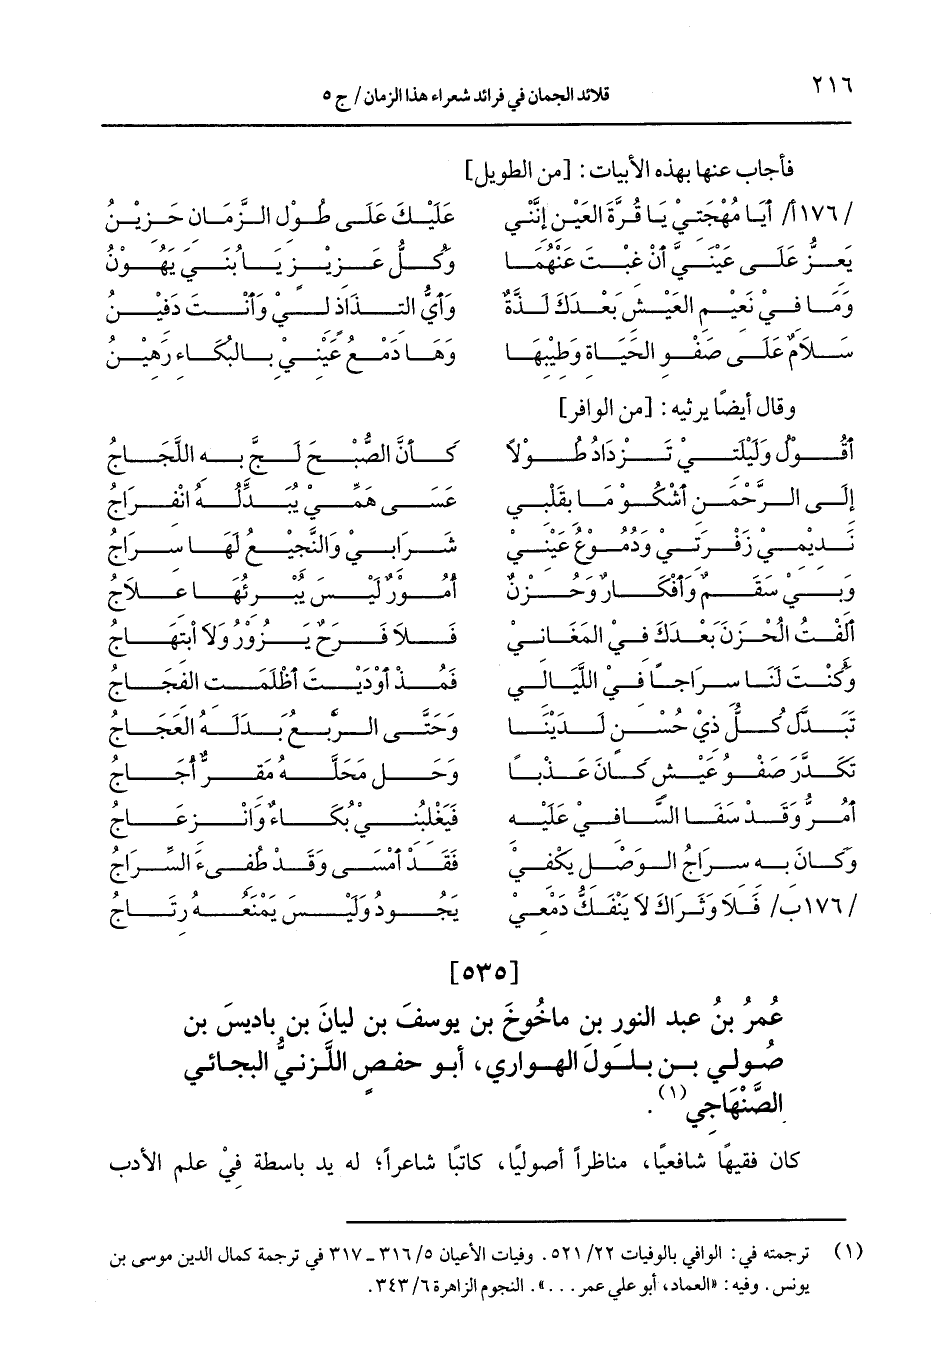 ٢١٦
قلائد الجمان في فرائد شعراء هذا الزمان/ ج ٥
فأجاب عنها بهذه الأبيات: [من الطويل]
/١٧٦أ/ أيَا مُهْجَتِيْ يَا قُرَّةَ العَيْنِ إِنَّنِي عَلَيْكَ عَلَى طُوْلِ الزَّمَانِ حَزِيْنُ
يَعزُّ عَلَى عَيْنَيَّ أَنْ غبْتَ عَنْهُمَا وَكُلُّ عَزِيْزٍ يَا بُنَيَّ يَهُوْنُ
وَمَا فِيْ نَعِيْمِ العَيْشِ بَعْدَكَ لَذَّةٌ وَأَيُّ التذَاذٍ لِيْ وَأَنْتَ دَفِيْنُ
سَلاَمٌ عَلَى صَفْوِ الحَيَاةِ وَطِيْبِهَا وَهَا دَمْعُ عَيْنِيْ بِالبُكَاءِ رَهِيْنُ
وقال أيضًا يرثيه: [من الوافر]
أَقُوْلُ وَلَيْلَتِيْ تَزْدَادُ طُوْلاً كَأَنَّ الصُّبْحَ لَجَّ بِهِ اللَّجَاجُ
إِلَى الرَّحْمَنِ أَشْكُوْ مَا بِقَلْبِي عَسَى هَمِّيْ يُبَدِّلُهُ انْفِرَاجُ
نَدِيْمِيْ زَفْرَتِيْ وَدُمُوْعُ عَيْنِيْ شَرَابِيْ وَالنَّجِيْعُ لَهَا سِرَاجُ
وَبِيْ سَقَمٌ وَأَفْكَارٌ وَحُزْنٌ أُمُوْرٌ لَيْسَ يُبْرِئُهَا عِلاَجُ
أَلفْتُ الحُزْنَ بَعْدَكَ فِيْ المَغَانِيْ فَلاَ فَرَحٌ يَزُوْرُ وَلاَ ابْتِهَاجُ
وَكُنْتَ لَنَا سِرَاجًا فِيْ اللَّيَالِي فَمُذْ أَوْدَيْتَ أَظْلَمَتِ الفجَاجُ
تَبَدَّلَ كُلُّ ذِيْ حُسْنٍ لَدَيْنَا وَحَتَّى الرَّبْعُ بَدَلَهُ العَجَاجُ
تَكَدَّرَ صَفْوُ عَيْشٍ كَانَ عَذْبًا وَحَلَّ مَحَلَّهُ مَقِرٌّ أُجَاجُ
أَمُرُّ وَقَدْ سَفَا السَّافِيْ عَلَيْهِ فَيَغْلِبُنِيْ بُكَاءٌ وَانْزِعَاجُ
وَكَانَ بِهِ سِرَاجُ الوَصْلِ يَكْفِيْ فَقَدْ أَمْسَى وَقَدْ طُفِيءَ السِّرَاجُ
/١٧٦ب/ فَلاَ وَثَرَاكَ لاَ يَنْفَكُّ دَمْعِيْ يَجُوْدُ وَلَيْسَ يَمْنَعُهُ رِتَاجُ
[٥٣٥]
عُمَرُ بنُ عبد النور بن ماخُوخَ بن يوسفَ بن ليانَ بن باديسَ بن
صُولي بن بلولَ الهواري، أبو حفصٍ اللَّزنيُّ البجائي
الصَّنْهَاجِي(١).
كان فقيهًا شافعيًا، مناظراً أصوليًا، كاتبًا شاعراً؛ له يد باسطة فِيْ علم الأدب
(١) ترجمته في: الوافي بالوفيات ٢٢/ ٥٢١. وفيات الأعيان ٥/ ٣١٦ـ ٣١٧ في ترجمة كمال الدين موسى بن
يونس. وفيه: «العماد، أبو علي عمر ...». النجوم الزاهرة ٦/ ٣٤٣.